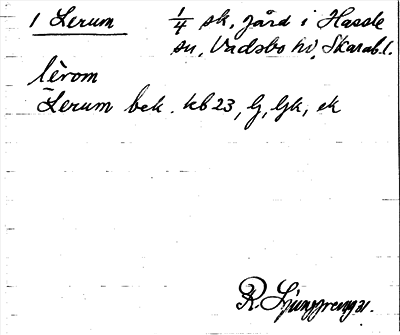 1 Lerum 1/4 sk, gård i Hassle
sn, Vadsbo hd, Skarab. l.
lèrom
Lerum bek. kb 23, G, Gk, ek
R. Ljunggren 31.